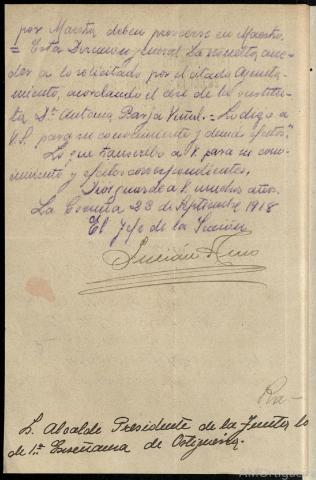 por Maestra, deben proveerse en Maestro.
= Esta Dirección general ha resuelto, acce-
der a lo solicitado por el citado Ayunta-
miento, acordando el cese de la sustitu-
ta Dª Antonia Parja = Lo digo a
V.S. para su conocimiento y demás efectos."
Lo que transcribo a V. para su cono-
cimiento y efectos correspondientes.
Dios guarde a V. muchos años.
La Coruña 23 de Septiembre 1918
El Jefe de la Sección,
S. Alcalde Presidente de la Junta lo
de 1ª Enseñanza de Ortigueira.